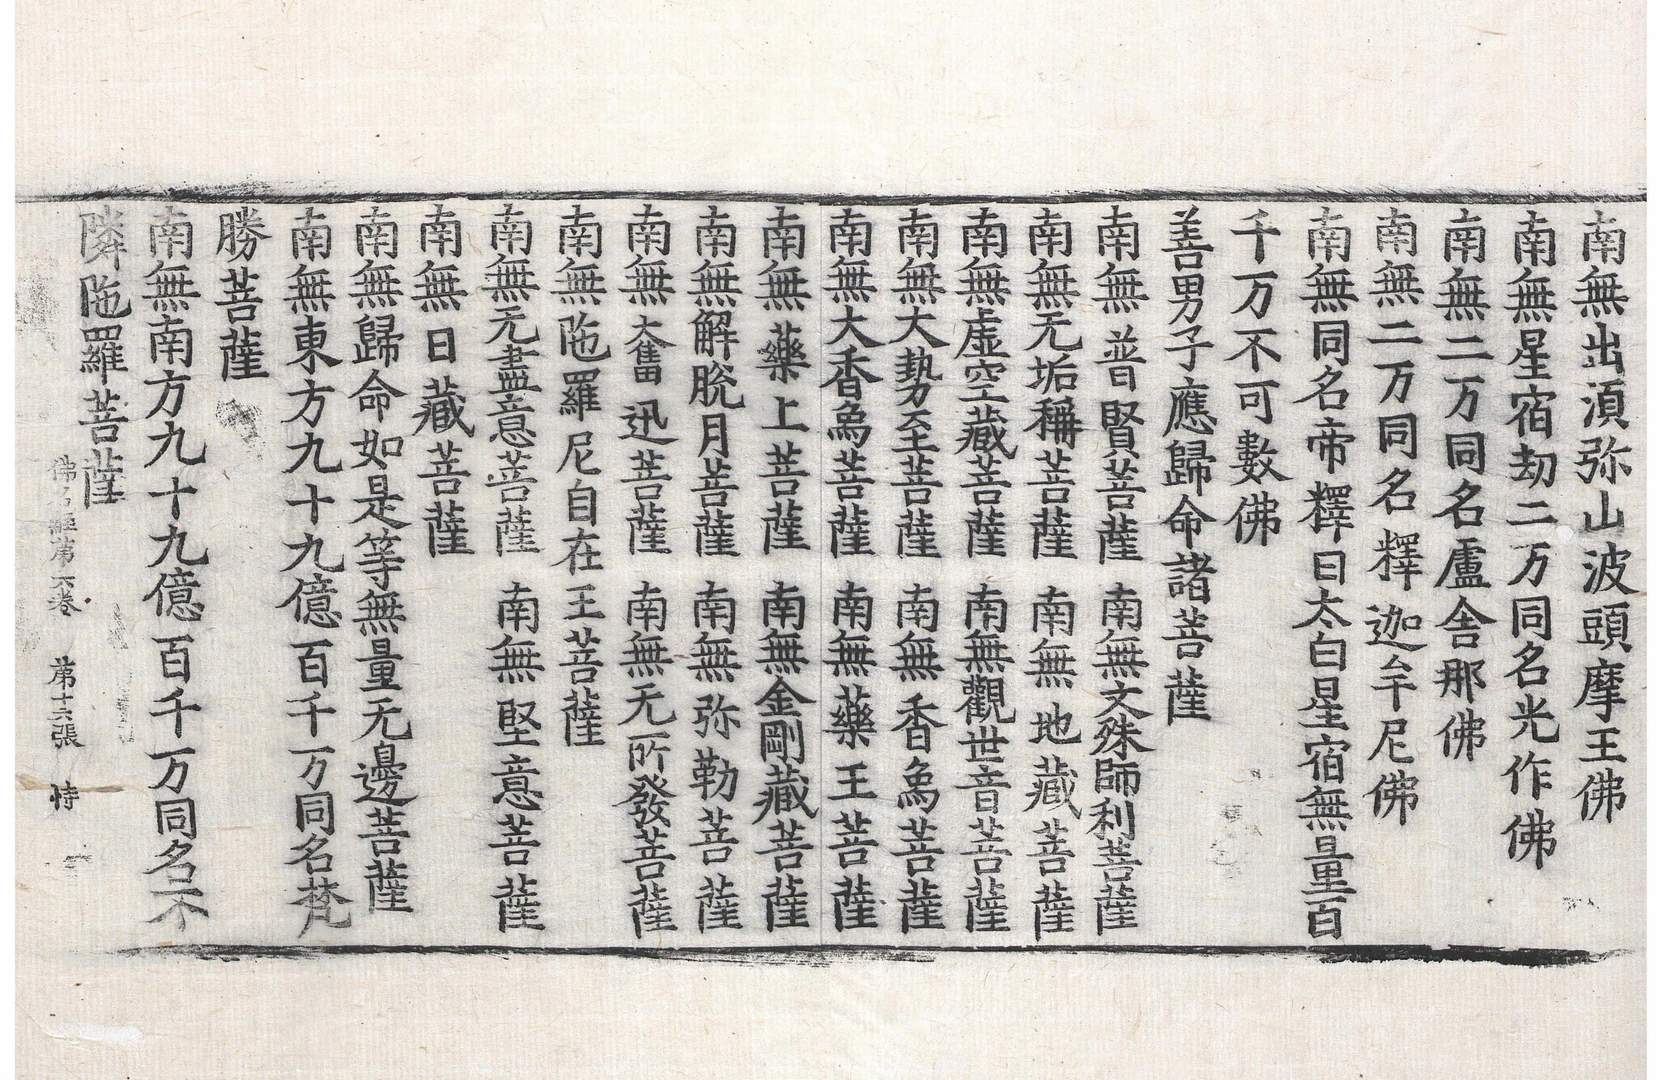 南無出湏弥山波頭摩王佛
南無星宿劫二万同名光作佛
南無二万同名盧舎那佛
南無二万同名釋迦牟尼佛
南無同名帝釋日太白星宿無量百
千万不可數佛
善男子應歸命諸菩薩
南無普賢菩薩　南無文殊師利菩薩
南無无垢稱菩薩　南無地藏菩薩
南無虛空藏菩薩　南無觀世音菩薩
南無大勢至菩薩　南無香烏菩薩
南無大香烏菩薩　南無藥王菩薩
南無藥上菩薩　南無金剛藏菩薩
南無解脫月菩薩　南無弥勒菩薩
南無大奮迅菩薩　南無无所發菩薩
南無陁羅尼自在王菩薩
南無无盡意菩薩　南無堅意菩薩
南無日藏菩薩
南無歸命如是等無量无邊菩薩
南無東方九十九億百千万同名梵
勝菩薩
南無南方九十九億百千万同名不
隣陁羅菩薩
佛名經第六卷　第十六張　恃